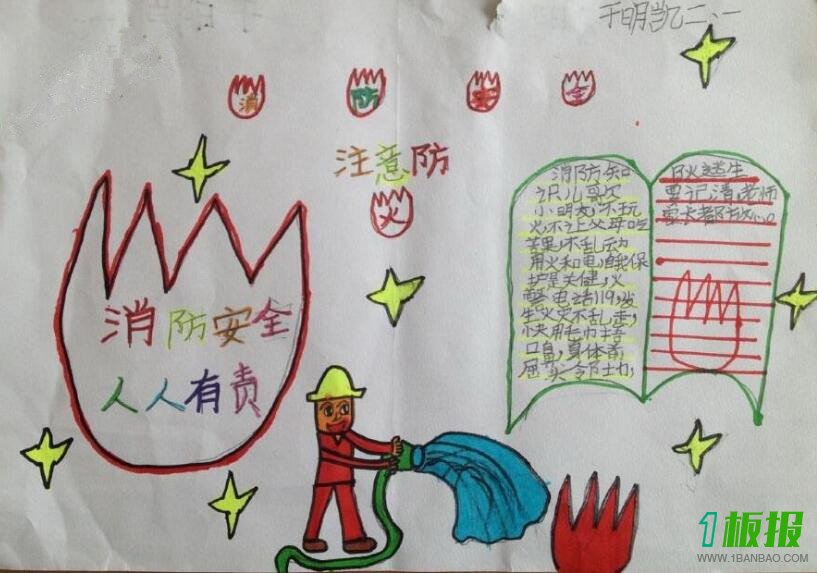 于明凯二、一
消 防 安 全
注意防
火
消防安全
人人有责
消防知
识儿歌
小朋友,不玩
火,不让父母吃
苦果,不乱动
用火和电,自我保
护是关健,火
警电话119,发
生火灾不乱走,
快用毛巾捂
口鼻,身体前
屈头令
火逃生
要记清老师
家长都放心。
1板报
WWW.1BANBAO.COM